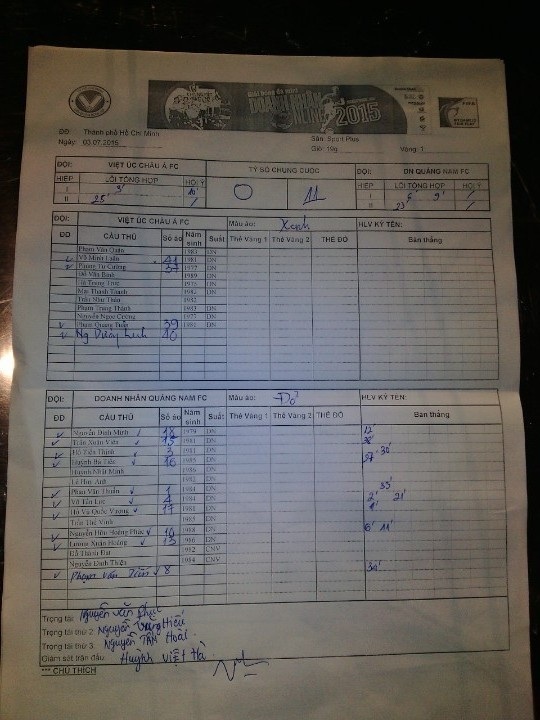 Giải bóng đá mini
DOANH NHÂN
ONLINE 2015
ĐĐ: Thành phố Hồ Chí Minh
Sân: Sport Plus
Ngày: 03.07.2015
Giờ: 19g
Vòng: 1
ĐỘI: VIỆT ÚC CHÂU Á FC TỶ SỐ CHUNG CUỘC ĐỘI: DN QUẢNG NAM FC
HIỆP LỖI TỔNG HỢP HỘI Ý 0 11 HIỆP LỖI TỔNG HỢP HỘI Ý
I 9'
II 25'
ĐỘI: VIỆT ÚC CHÂU Á FC Màu áo: Xanh HLV KÝ TÊN:
ĐD CẦU THỦ Số áo Năm sinh Suất Thẻ Vàng 1 Thẻ Vàng 2 THẺ ĐỎ Bàn thắng
Phạm Văn Quân DN
Võ Minh Luân 41 1981 DN
Phùng Tư Cường 37 DN
Đỗ Văn Bình 1989 DN
Hà Trung Trực DN
Mai Thanh Toanh 1982 DN
Trần Như Thân 1982
Phạm Trung Thành 1983 DN
Nguyễn Ngọc Cương 1977 DN
Phạm Quang Tuấn 39 DN
10
ĐỘI: DOANH NHÂN QUẢNG NAM FC Màu áo: Đỏ HLV KÝ TÊN:
ĐD CẦU THỦ Số áo Năm sinh Suất Thẻ Vàng 1 Thẻ Vàng 2 THẺ ĐỎ Bàn thắng
Nguyễn Đình Minh 18 1979 DN 12'
Trần Xuân Viên 15 1981 DN
Hồ Tiến Thịnh 3 1981 DN
Huỳnh Bá Tiên 16 1985 DN 27' 30'
Huỳnh Nhật Minh 1986 DN
Lê Huy Anh 1982 DN
Phan Văn Thuấn 1 1984 DN 35'
Võ Tấn Lực 4 1984 DN 2' 21'
Hồ Vũ Quốc Vương 17 1981 DN
Trần Thế Vinh 1985 DN
Nguyễn Hữu Hoàng Phúc 10 1988 DN 6' 11'
Lương Xuân Hoàng 13 1986 DN
Đỗ Thành Đạt 1982 CNV
Nguyễn Đình Thiện 1984 CNV
Phạm Văn Tiến 8
Trọng tài: Nguyễn Văn Phúc
Trọng tài thứ 2: Nguyễn Trung Hiếu
Trọng tài thứ 3: Nguyễn Tấn Hoài
Giám sát trận đấu: Huỳnh Việt Hà
*** CHÚ THÍCH